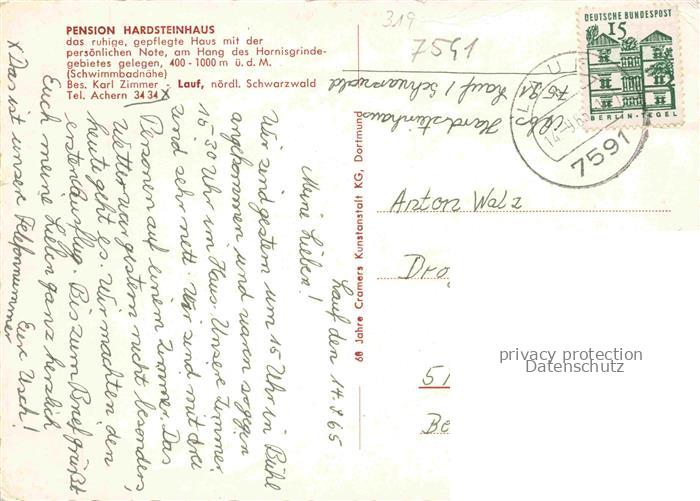 PENSION HARDSTEINHAUS
das ruhige, gepflegte Haus mit der
persönlichen Note, am Hang des Hornisgrinde-
gebietes gelegen, 400-1000 m ü. d. M.
(Schwimmbadnähe)
Bes. Karl Zimmer - Lauf, nördl. Schwarzwald
Tel. Achern 3434 x
Lauf den 14.8.65
Meine Lieben!
Wir sind gestern um 15 Uhr in Bühl
angekommen und waren so gegen
15.30 Uhr im Haus. Unsere Zimmer
sind sehr nett. Wir sind mit drei
Personen auf einem Zimmer. Das
Wetter war gestern nicht besonders,
heute geht es. Wir machten den
ersten Ausflug. Bis zum Brief grüßt
Euch meine Lieben ganz herzlich
Eure Usch!
x Das ist unser Telefonnummer
68 Jahre Cramers Kunstanstalt KG, Dortmund
Abs. Hardsteinhaus
7591 Lauf / Schwarzwald
319
7591
DEUTSCHE BUNDESPOST
15
BERLIN-TEGEL
7591
Anton Walz
51
privacy protection
Datenschutz